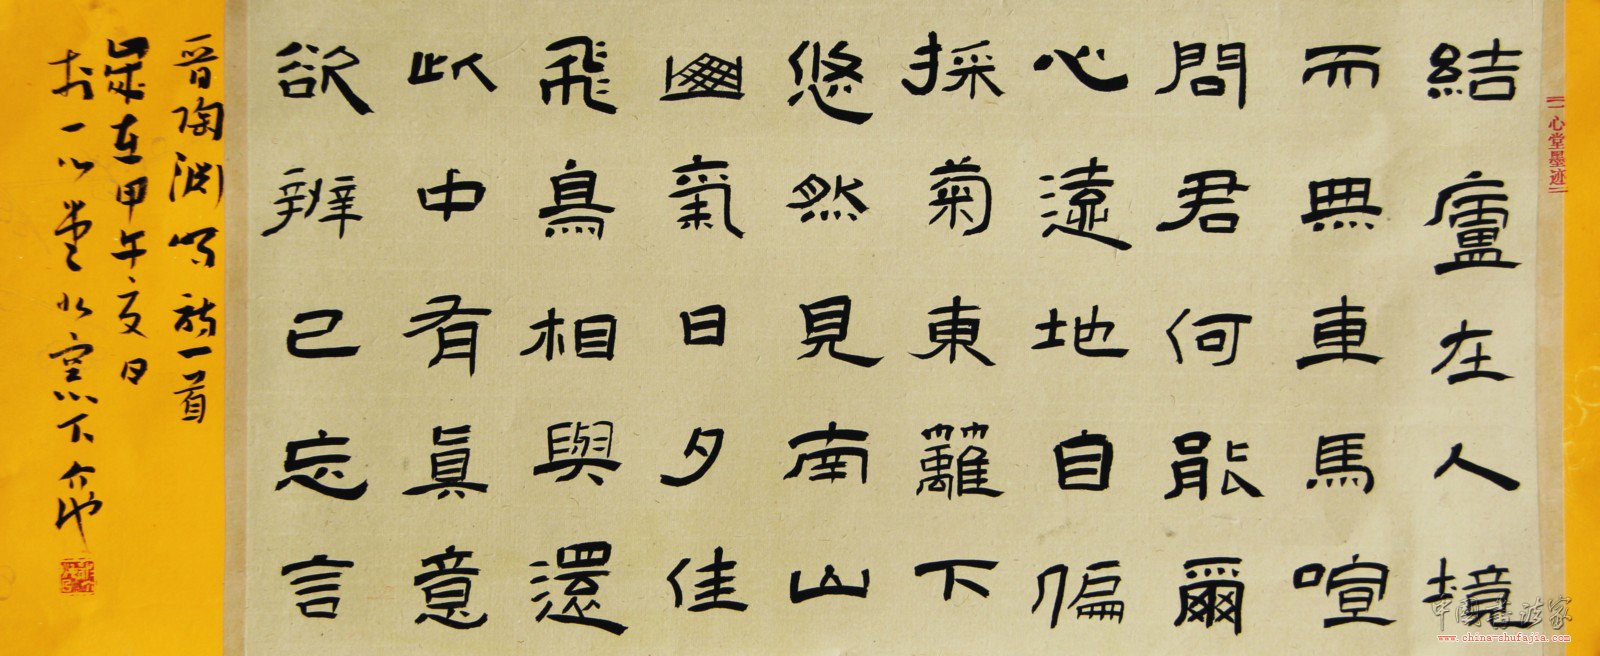 一心堂墨迹
結廬在人境
而無車馬喧
問君何能爾
心遠地自偏
採菊東籬下
悠然見南山
氣日夕佳
飛鳥相與還
此中有眞意
欲辨已忘言
晋陶渊明詩一首
歲在甲午夏日
於一心堂北窓下
中國書法家
www.china-shufajia.com